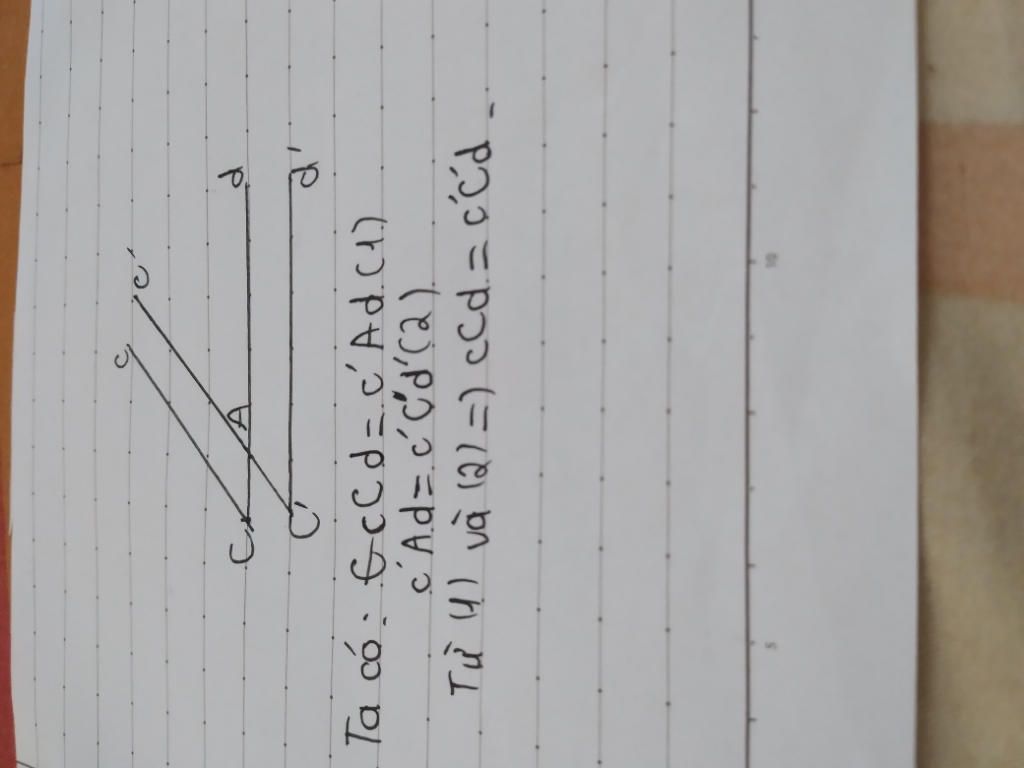 c
c'
C
A
d
C'
d'
Ta có: cCd = c'Ad (1)
c'Ad = c'C'd' (2)
Từ (1) và (2) =) cCd = c'C'd
10
5